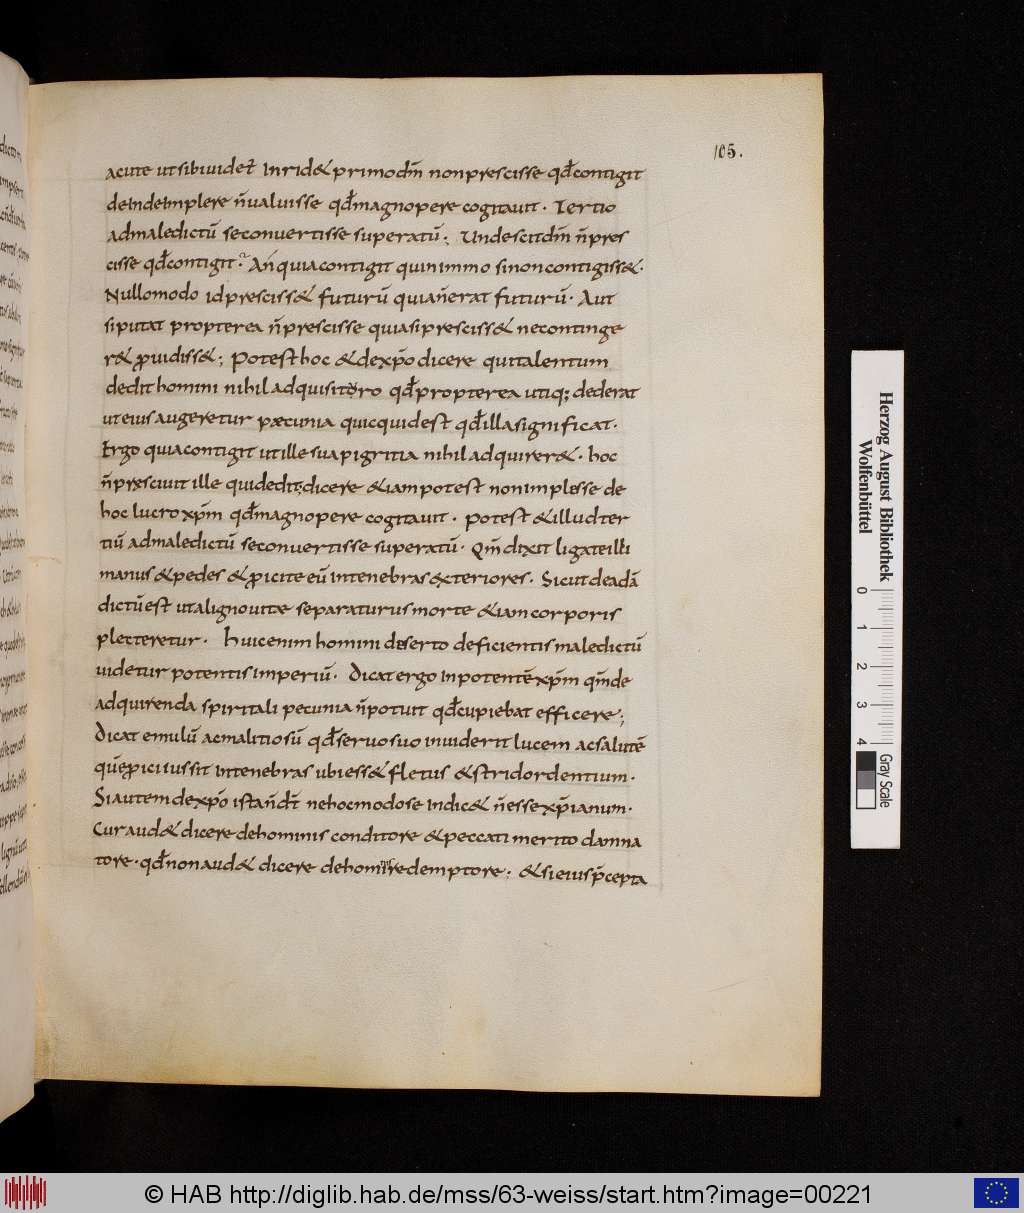 105.
acute ut sibi uidet̄ inrid& primo dm̄ non prescisse qđ contigit
deinde implere n̄ ualuisse qđ magnopere cogitauit · Tertio
ad maledictū se conuertisse superatū ; Unde scit dm̄ n̄ pres
cisse qđ contigit · An quia contigit quin immo si non contigiss& ·
Nullo modo id presciss& futurū quia n̄ erat futurū · Aut
si putat propterea n̄ prescisse quia si presciss& ne continge
r& ꝓuidiss& ; Potest hoc & de xp̄o dicere qui talentum
dedit homini nihil adquisitoro qđ propterea utiq; dederat
ut eius augeretur pæcunia quicquid est qđ illa significat ·
Ergo quia contigit ut ille sua pigritia nihil adquirer& · hoc
n̄ presciuit ille qui dedit ; dicere & iam potest non implesse de
hoc lucro xp̄m qđ magnopere cogitauit · potest & illud ter
tiū ad maledictū se conuertisse superatū · Qm̄ dixit ligate illi
manus & pedes & ꝓicite eū in tenebras exteriores · Sicut de adā
dictū est ut a ligno uitæ separaturus morte & iam corporis
plecteretur · Huic enim homini deserto deficientis maledictū
uidetur potentis imperiū · Dicat ergo inpotentē xp̄m qm̄ de
adquirenda spiritali pecunia n̄ potuit qđ cupiebat efficere ;
Dicat emulū ac malitiosū qđ seruo suo inuiderit lucem ac salutē
quē ꝓici iussit in tenebras ubi ess& fletus & stridor dentium ·
Si autem de xp̄o ista n̄ dt̄ ne hoc modo se indic& n̄ esse xp̄ianum ·
Cur aud& dicere de hominis conditore & peccati merito damna
tore · qđ non aud& dicere de hominis redemptore ; & si eius p̄cepta
Herzog August Bibliothek
Wolfenbüttel
0 1 2 3 4
Gray Scale
© HAB http://diglib.hab.de/mss/63-weiss/start.htm?image=00221